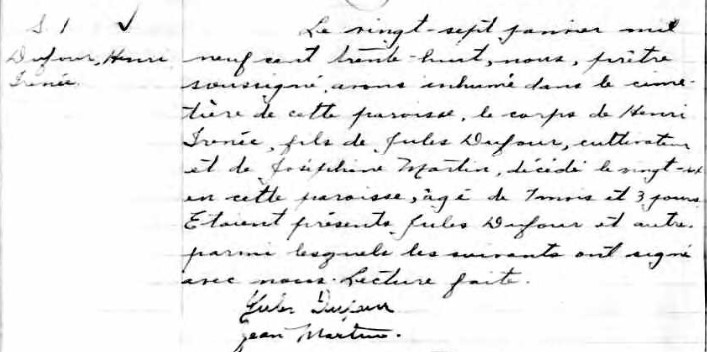 S. 1 ✓
Dufour, Henri
Irenée.
Le vingt-sept janvier mil
neuf cent trente-huit, nous, prêtre
soussigné, avons inhumé dans le cime-
tière de cette paroisse, le corps de Henri
Irenée, fils de Jules Dufour, cultivateur
et de Joséphine Martin, décédé le vingt-six
en cette paroisse, âgé de 7 mois et 3 jours.
Etaient présents Jules Dufour et autre.
parmi lesquels les suivants ont signé
avec nous. Lecture faite.
Jules Dufour
Jean Martin.